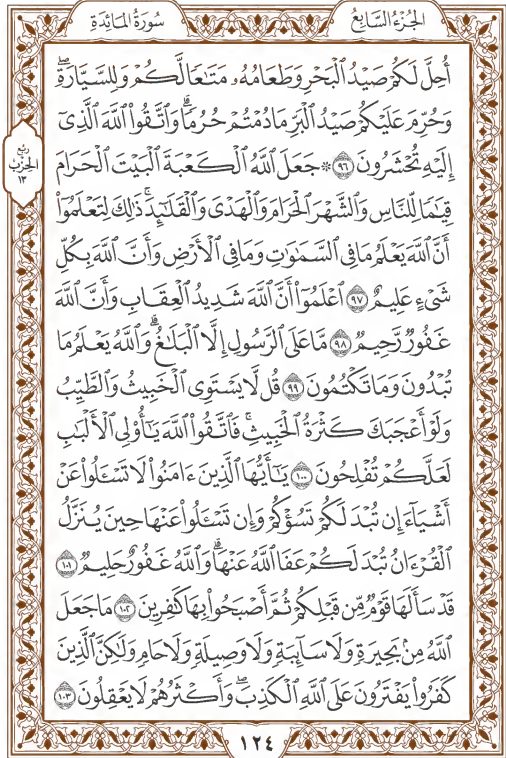 الجزء السابع
سورة المائدة
أُحِلَّ لَكُمْ صَيْدُ ٱلْبَحْرِ وَطَعَامُهُۥ مَتَٰعًا لَّكُمْ وَلِلسَّيَّارَةِۖ
وَحُرِّمَ عَلَيْكُمْ صَيْدُ ٱلْبَرِّ مَا دُمْتُمْ حُرُمًاۗ وَٱتَّقُوا۟ ٱللَّهَ ٱلَّذِىٓ
إِلَيْهِ تُحْشَرُونَ ٩٦ ۞ جَعَلَ ٱللَّهُ ٱلْكَعْبَةَ ٱلْبَيْتَ ٱلْحَرَامَ
ربع
الحزب
١٣
قِيَٰمًا لِّلنَّاسِ وَٱلشَّهْرَ ٱلْحَرَامَ وَٱلْهَدْىَ وَٱلْقَلَٰٓئِدَۚ ذَٰلِكَ لِتَعْلَمُوٓا۟
أَنَّ ٱللَّهَ يَعْلَمُ مَا فِى ٱلسَّمَٰوَٰتِ وَمَا فِى ٱلْأَرْضِ وَأَنَّ ٱللَّهَ بِكُلِّ
شَىْءٍ عَلِيمٌ ٩٧ ٱعْلَمُوٓا۟ أَنَّ ٱللَّهَ شَدِيدُ ٱلْعِقَابِ وَأَنَّ ٱللَّهَ
غَفُورٌ رَّحِيمٌ ٩٨ مَّا عَلَى ٱلرَّسُولِ إِلَّا ٱلْبَلَٰغُۗ وَٱللَّهُ يَعْلَمُ مَا
تُبْدُونَ وَمَا تَكْتُمُونَ ٩٩ قُل لَّا يَسْتَوِى ٱلْخَبِيثُ وَٱلطَّيِّبُ
وَلَوْ أَعْجَبَكَ كَثْرَةُ ٱلْخَبِيثِۚ فَٱتَّقُوا۟ ٱللَّهَ يَٰٓأُو۟لِى ٱلْأَلْبَٰبِ
لَعَلَّكُمْ تُفْلِحُونَ ١٠٠ يَٰٓأَيُّهَا ٱلَّذِينَ ءَامَنُوا۟ لَا تَسْـَٔلُوا۟ عَنْ
أَشْيَآءَ إِن تُبْدَ لَكُمْ تَسُؤْكُمْ وَإِن تَسْـَٔلُوا۟ عَنْهَا حِينَ يُنَزَّلُ
ٱلْقُرْءَانُ تُبْدَ لَكُمْ عَفَا ٱللَّهُ عَنْهَاۗ وَٱللَّهُ غَفُورٌ حَلِيمٌ ١٠١
قَدْ سَأَلَهَا قَوْمٌ مِّن قَبْلِكُمْ ثُمَّ أَصْبَحُوا۟ بِهَا كَٰفِرِينَ ١٠٢ مَا جَعَلَ
ٱللَّهُ مِنۢ بَحِيرَةٍ وَلَا سَآئِبَةٍ وَلَا وَصِيلَةٍ وَلَا حَامٍ وَلَٰكِنَّ ٱلَّذِينَ
كَفَرُوا۟ يَفْتَرُونَ عَلَى ٱللَّهِ ٱلْكَذِبَۖ وَأَكْثَرُهُمْ لَا يَعْقِلُونَ ١٠٣
١٢٤